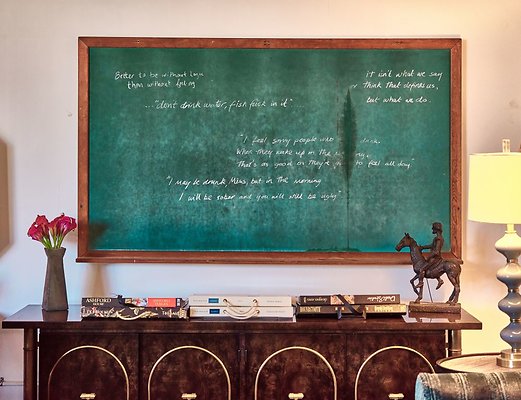 Better to be without logic
than without feeling
it isn't what we say
or think that defines us,
but what we do.
..."don't drink water, fish fuck in it"...
"I feel sorry people who drink.
When they wake up in the
That's as good as they're to feel all day."
"I may be drunk, Miss, but in the morning
I will be sober and you will still be ugly"
ASHFORD